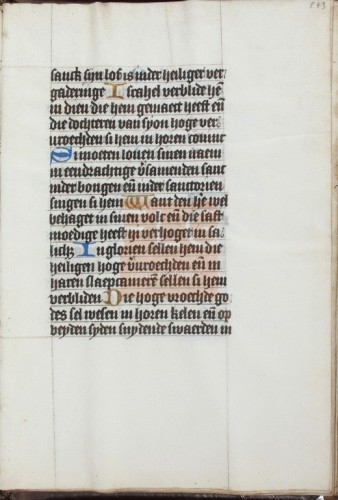 sanck sijn lof is inder heiliger ver
gaderinge Israhel verblide hē
in dien die hem gemaect heeft eñ
die dochteren van syon hoge ver
vroechden si hem in horen coninc
Si moeten louen sinen naem
in eendrachtige vsamenden sanc
inder bongen eñ inder sautorien
singen si hem Want den hē wel
behaget in sinen volc eñ die saft
moedige heeft hi verhoget in sa
licħ In glorien sellen hem die
heiligen hoge vvroechden eñ in
haren slaepcamerē sellen si hem
verbliden Die hoge vroechde go
des sel wesen in horen kelen eñ op
beyden syden snydende swaerden in